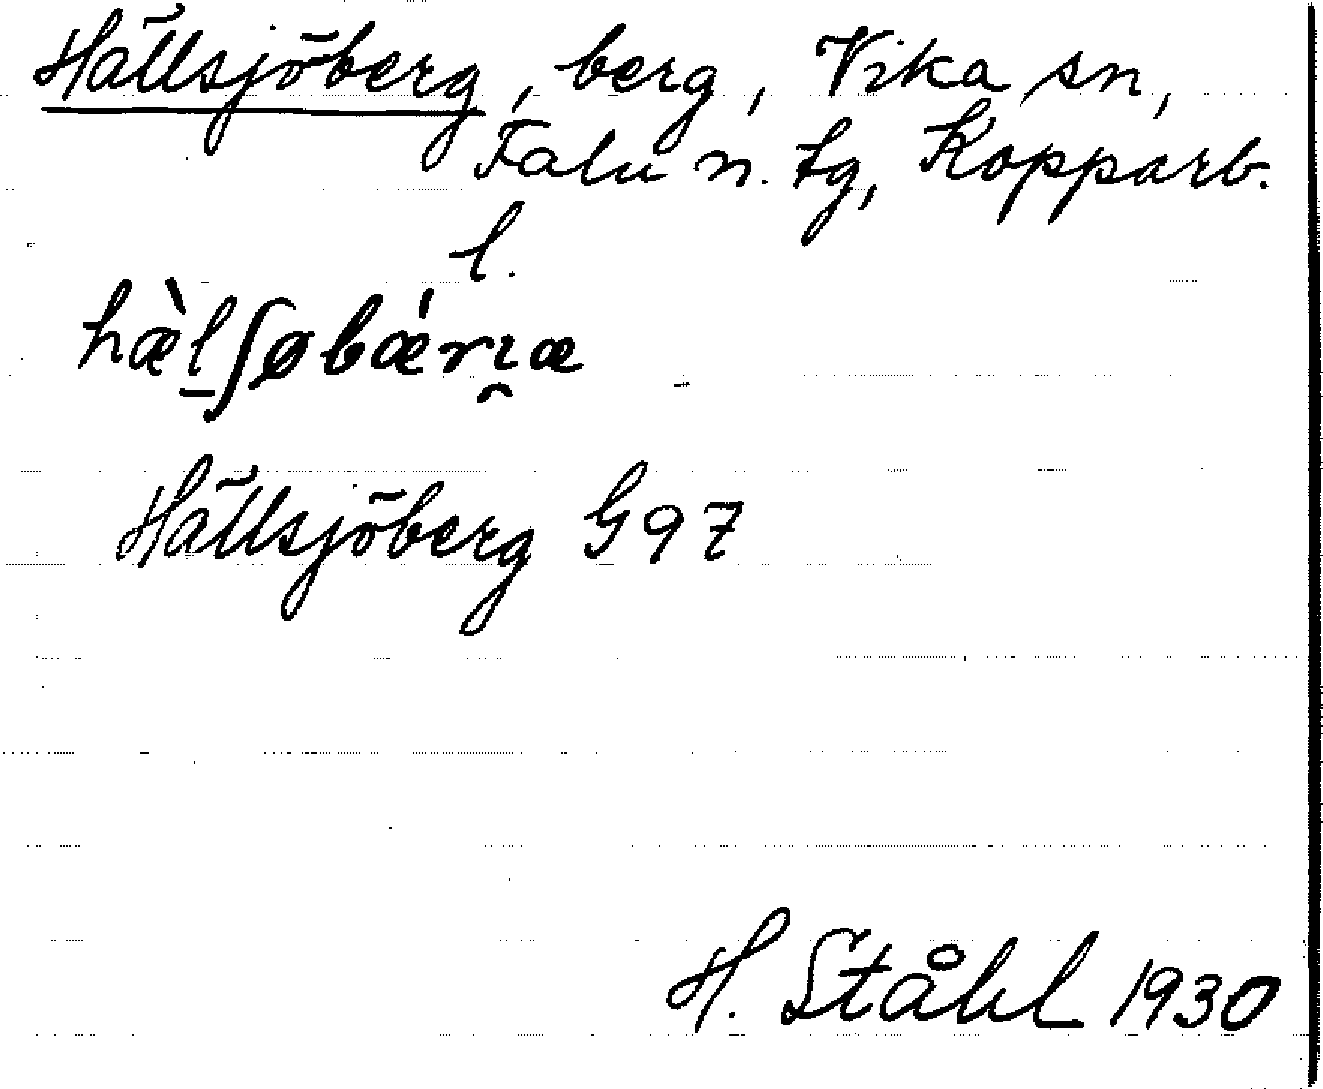 Hällsjöberg, berg, Vika sn,
Falu n. tg, Kopparb.
l.
hæ̀l̠ʃøbǽrı̯æ
Hällsjöberg G97
H. Ståhl 1930